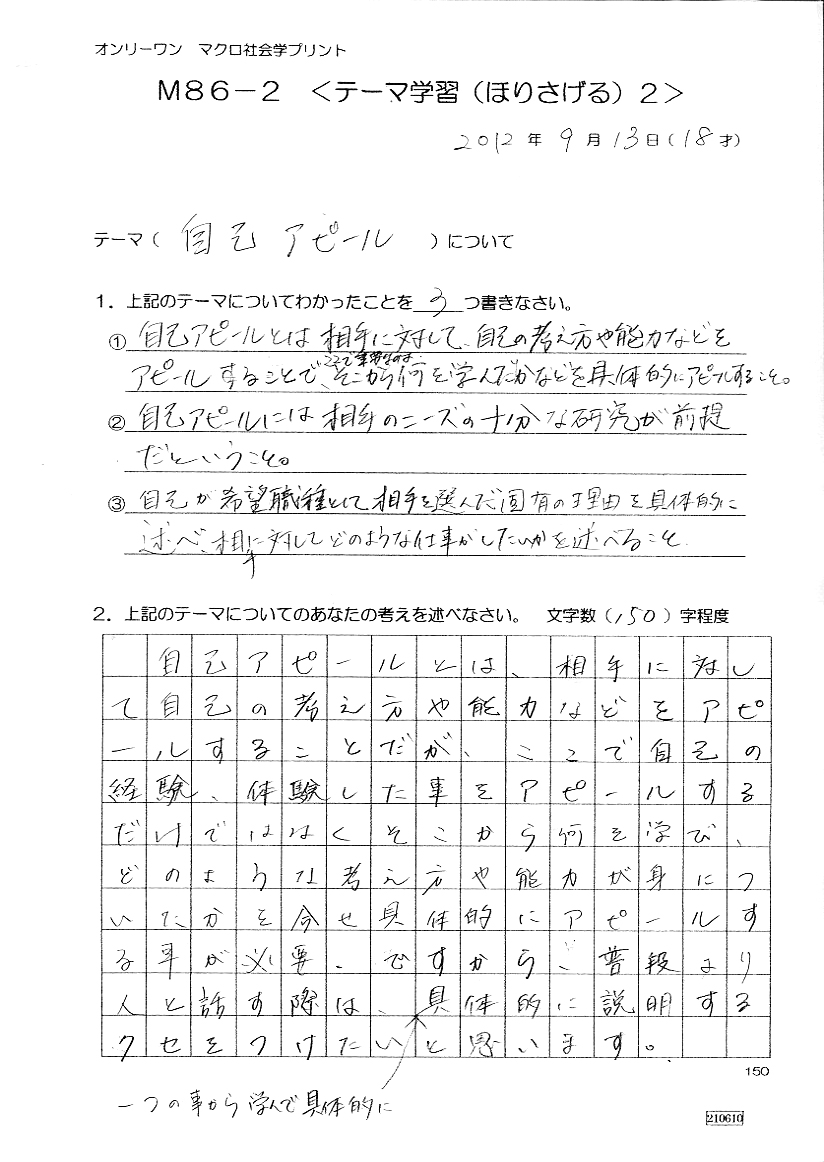 オンリーワン　マクロ社会学プリント
M86－2　＜テーマ学習（ほりさげる）2＞
2012年 9月 13日（18才）
テーマ（ 自己 アピール ）について
1．上記のテーマについてわかったことを 3 つ書きなさい。
① 自己アピールとは相手に対して、自己の考え方や能力などを
ここで重要なのは、
アピールすることで、そこから何を学んだかなどを具体的にアピールすること。
② 自己アピールには相手のニーズの十分な研究が前提
だということ。
③ 自己が希望職種として相手を選んだ固有の理由を具体的に
述べ、相手に対してどのような仕事がしたいかを述べること
2．上記のテーマについてのあなたの考えを述べなさい。　文字数（150）字程度
自己アピールとは、相手に対し
て自己の考え方や能力などをアピ
ールすることだが、ここで自己の
経験、体験した事をアピールする
だけではなくそこから何を学び、
どのような考え方や能力が身につ
いたかを含せ具体的にアピールす
る事が必要、ですから、普段より
人と話す際は、具体的に説明する
クセをつけたいと思います。
150
一つの事から学んで具体的に
210610